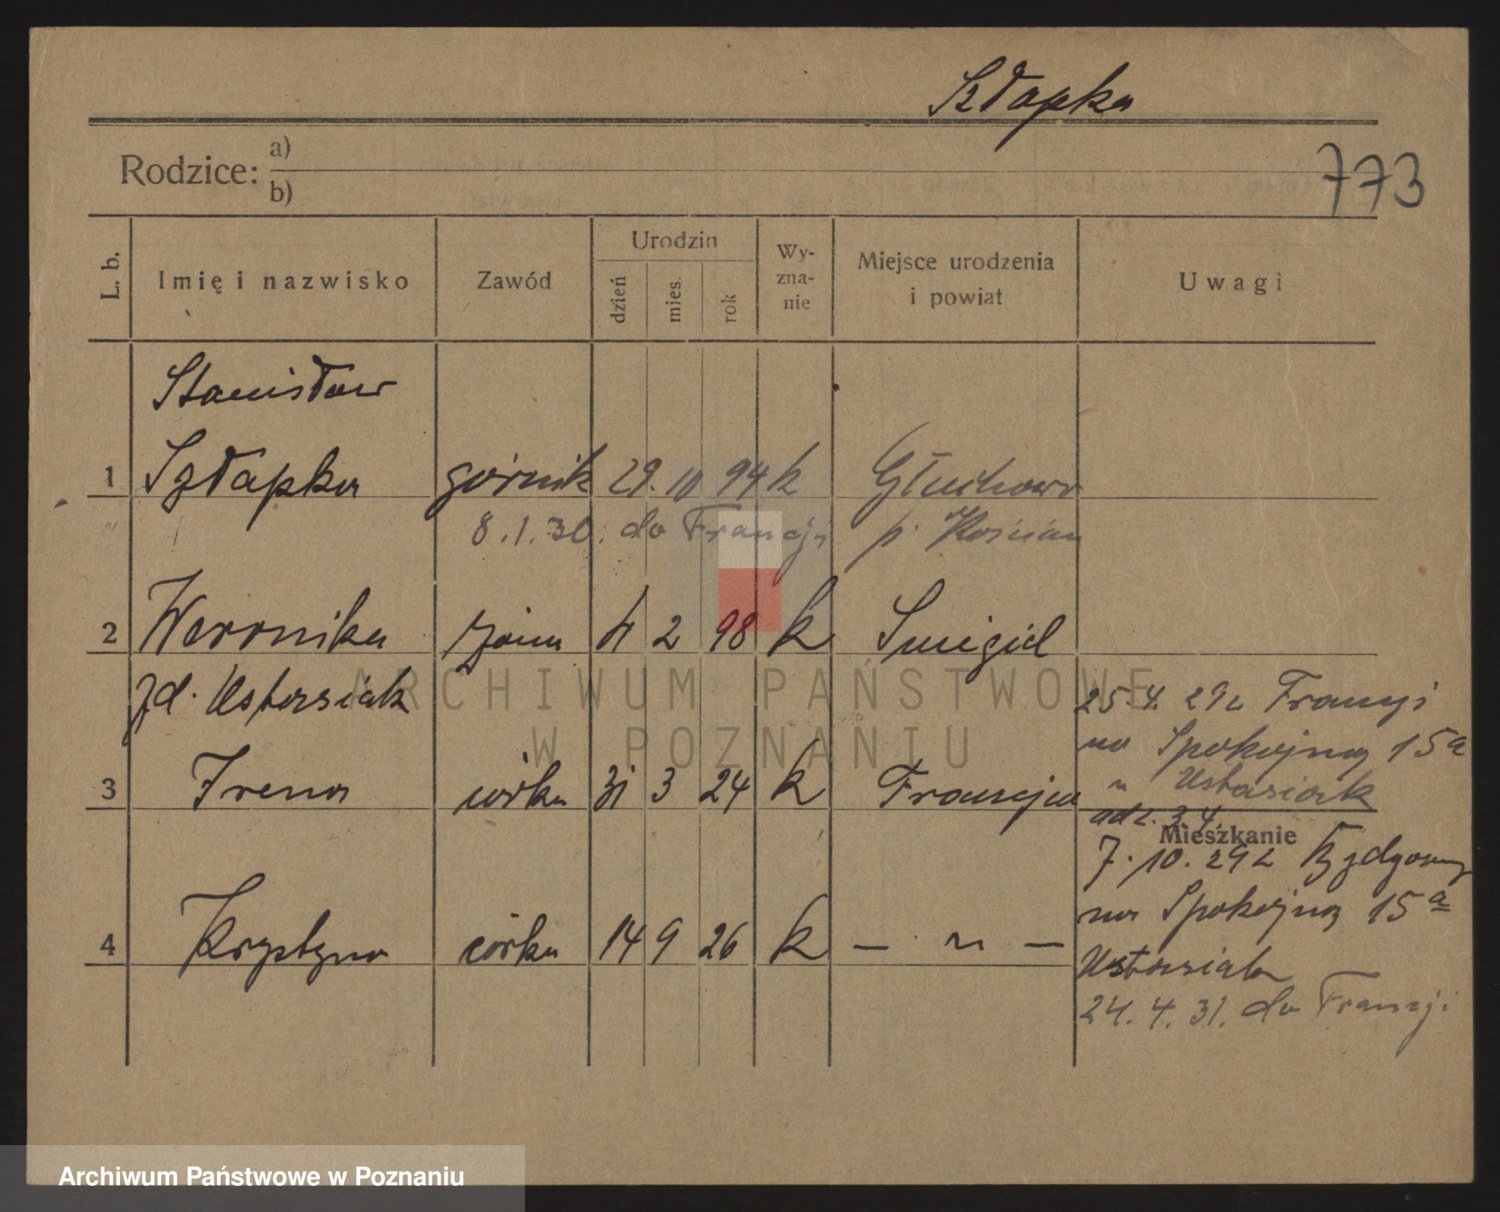 Szłapka
773
Rodzice: a)
b)
L. b.
Imię i nazwisko
Zawód
Urodzin
dzień
mies.
rok
Wy-
zna-
nie
Miejsce urodzenia
i powiat
Uwagi
Stanisław
1 Szłapka górnik 29. 10 94 k Głuchowo
8.1.30. do Francji p. Kościan
2 Weronika żona 2 98 k Śmigiel
zd. Ustasiak
25.4. 29 z Francji
na Spokojną 15a
3 Irena córka 31 3 24 k Francja
u Ustasiak
Mieszkanie
7.10.29 z Bydgoszczy
na Spokojną 15a
4 Krystyna córka 14 9 26 k — " —
Ustasiak
24.4.31. do Francji
ARCHIWUM PAŃSTWOWE
W POZNANIU
Archiwum Państwowe w Poznaniu